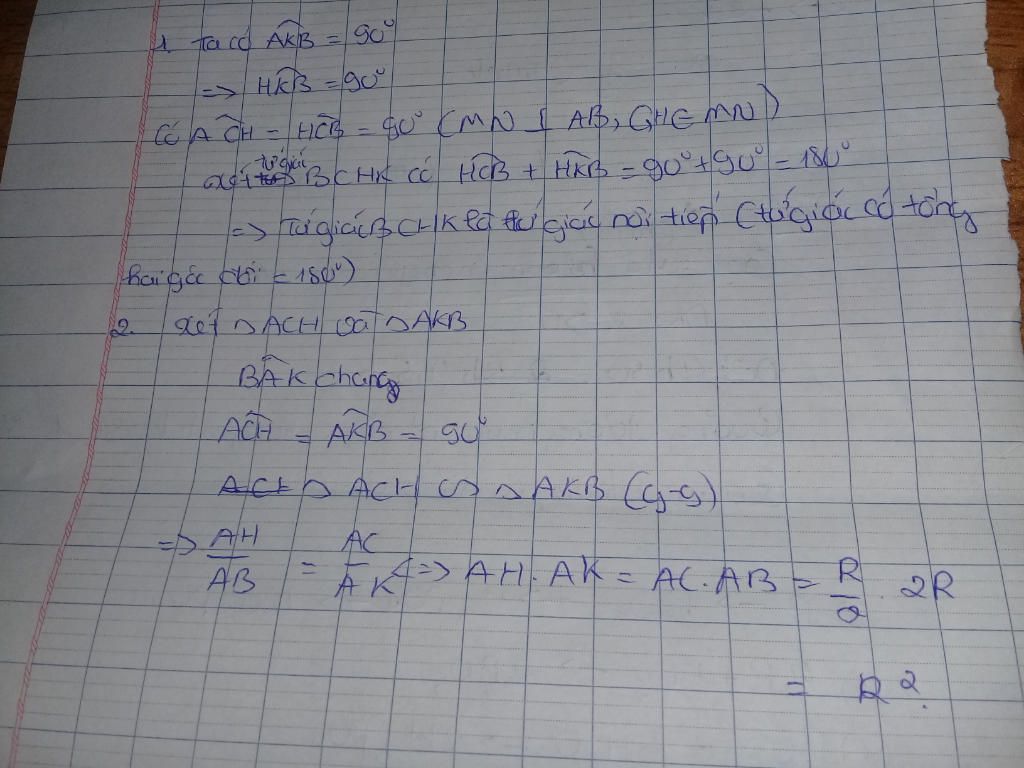 1. Ta có AK̂B = 90°
=> HK̂B = 90°
Có AĈH = HĈB = 90° (MN ⊥ AB, CH ∈ MN)
xét tứ giác BCHK có HĈB + HK̂B = 90° + 90° = 180°
=> Tứ giác BCHK là tứ giác nội tiếp (tứ giác có tổng
hai góc đối = 180°)
2. Xét △ACH và △AKB
BÂK chung
AĈH = AK̂B = 90°
△ACH ∽ △AKB (g-g)
=> AH/AB = AC/AK <=> AH.AK = AC.AB = R/2 . 2R
= R².